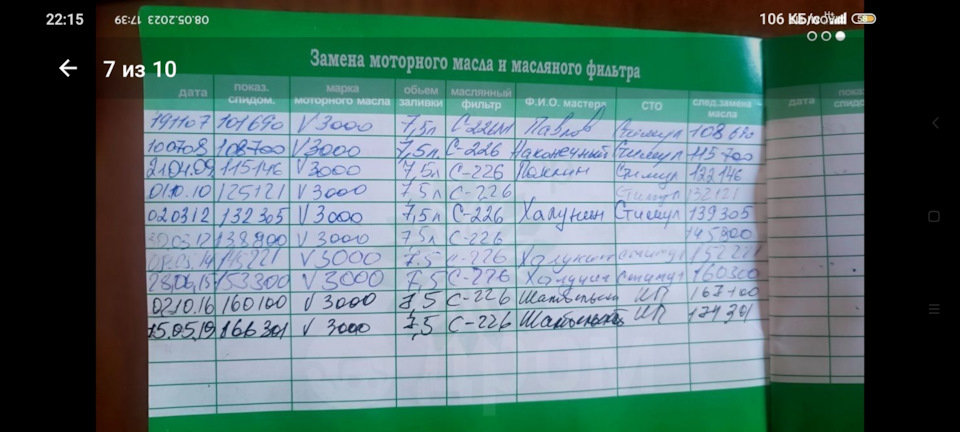 22:15
08.05.2023 17:39
106 КБ/с
58
7 из 10
Замена моторного масла и масляного фильтра
дата показ. спидом. марка моторного масла объем заливки маслянный фильтр Ф.И.О. мастера СТО след.замена масла дата
191107 101690 V 3000 7,5л С-226М Павлов Стимул 108690
100708 108700 V3000 7,5л. С-226 Наконечный Стимул 115700
21.04.09 115146 V3000 7,5л С-226 Стимул 122146
01.10.10 125121 V3000 7,5л С-226 Стимул 132121
020312 132305 V3000 7,5л С-226 Халунин Стимул 139305
138900 V 3000 7.5л С-226 145900
145221 V3000 7,5 С-226 152221
28.06.15 153300 V3000 7,5 С-226 160300
02.10.16 160100 V 3000 7,5 С-226 ИП 167100
15.05.19 166301 V 3000 7,5 С-226 ИП 174301